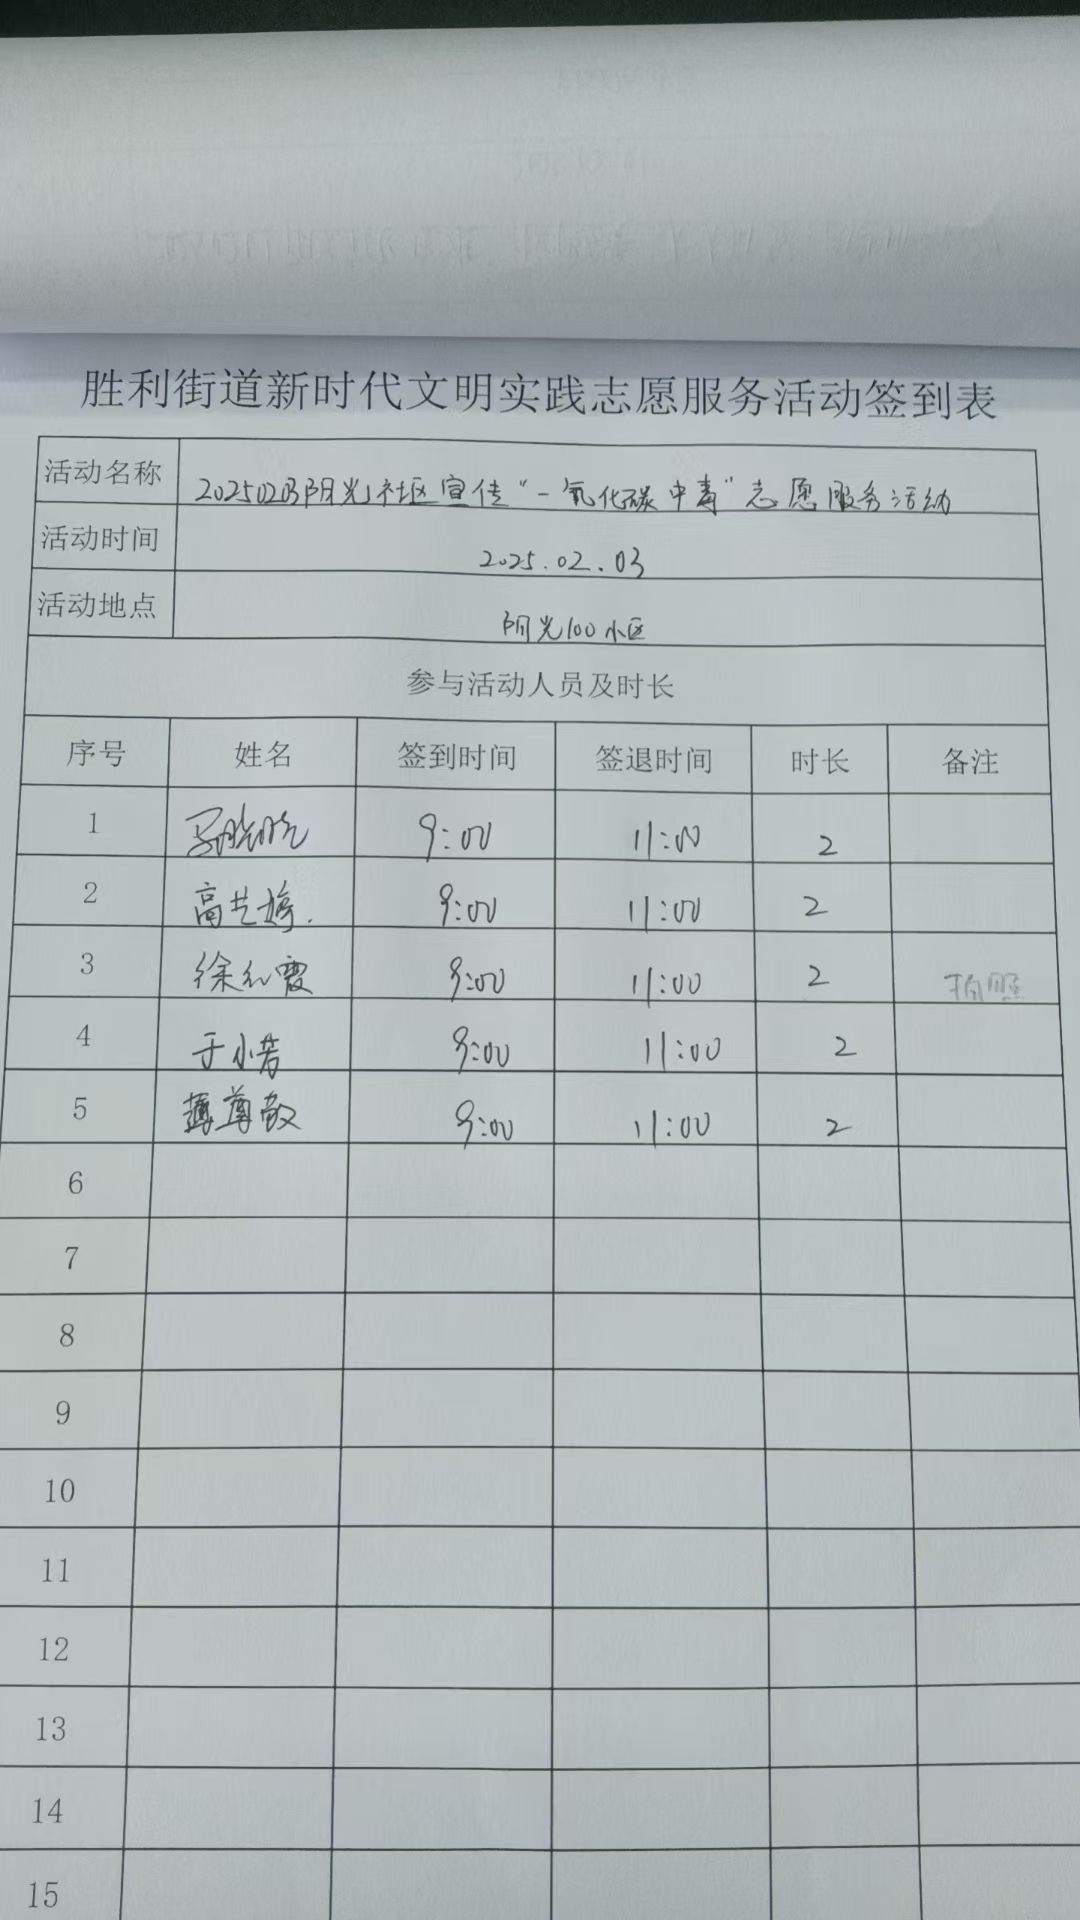 胜利街道新时代文明实践志愿服务活动签到表
活动名称 20250203阳光社区宣传“一氧化碳中毒”志愿服务活动
活动时间 2025.02.03
活动地点 阳光100小区
参与活动人员及时长
序号 姓名 签到时间 签退时间 时长 备注
1 晓晓 9:00 11:00 2
2 高艺婷. 9:00 11:00 2
3 徐红霞 9:00 11:00 2 拍照
4 于小芳 9:00 11:00 2
5 尊敬 9:00 11:00 2
6
7
8
9
10
11
12
13
14
15